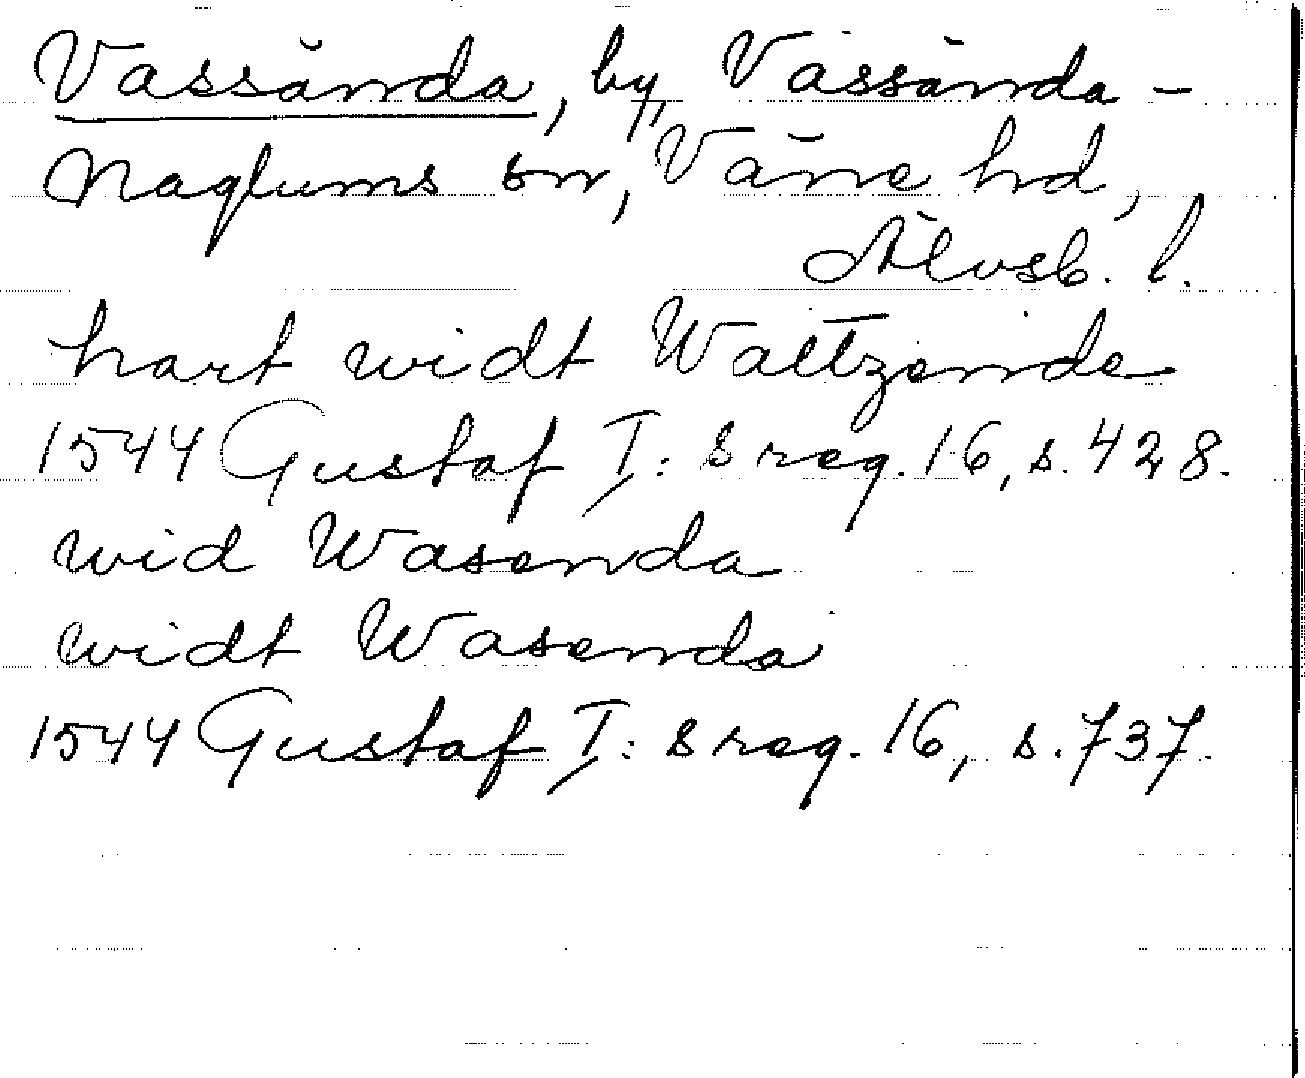 Vassända, by, Vassända-
Naglums sn, Väne hd,
Älvsb. l.
hart widt Waltzende
1544 Gustaf I:s reg. 16, s. 428.
wid Wasenda
widt Wasenda
1544 Gustaf I:s reg. 16, s. 737.